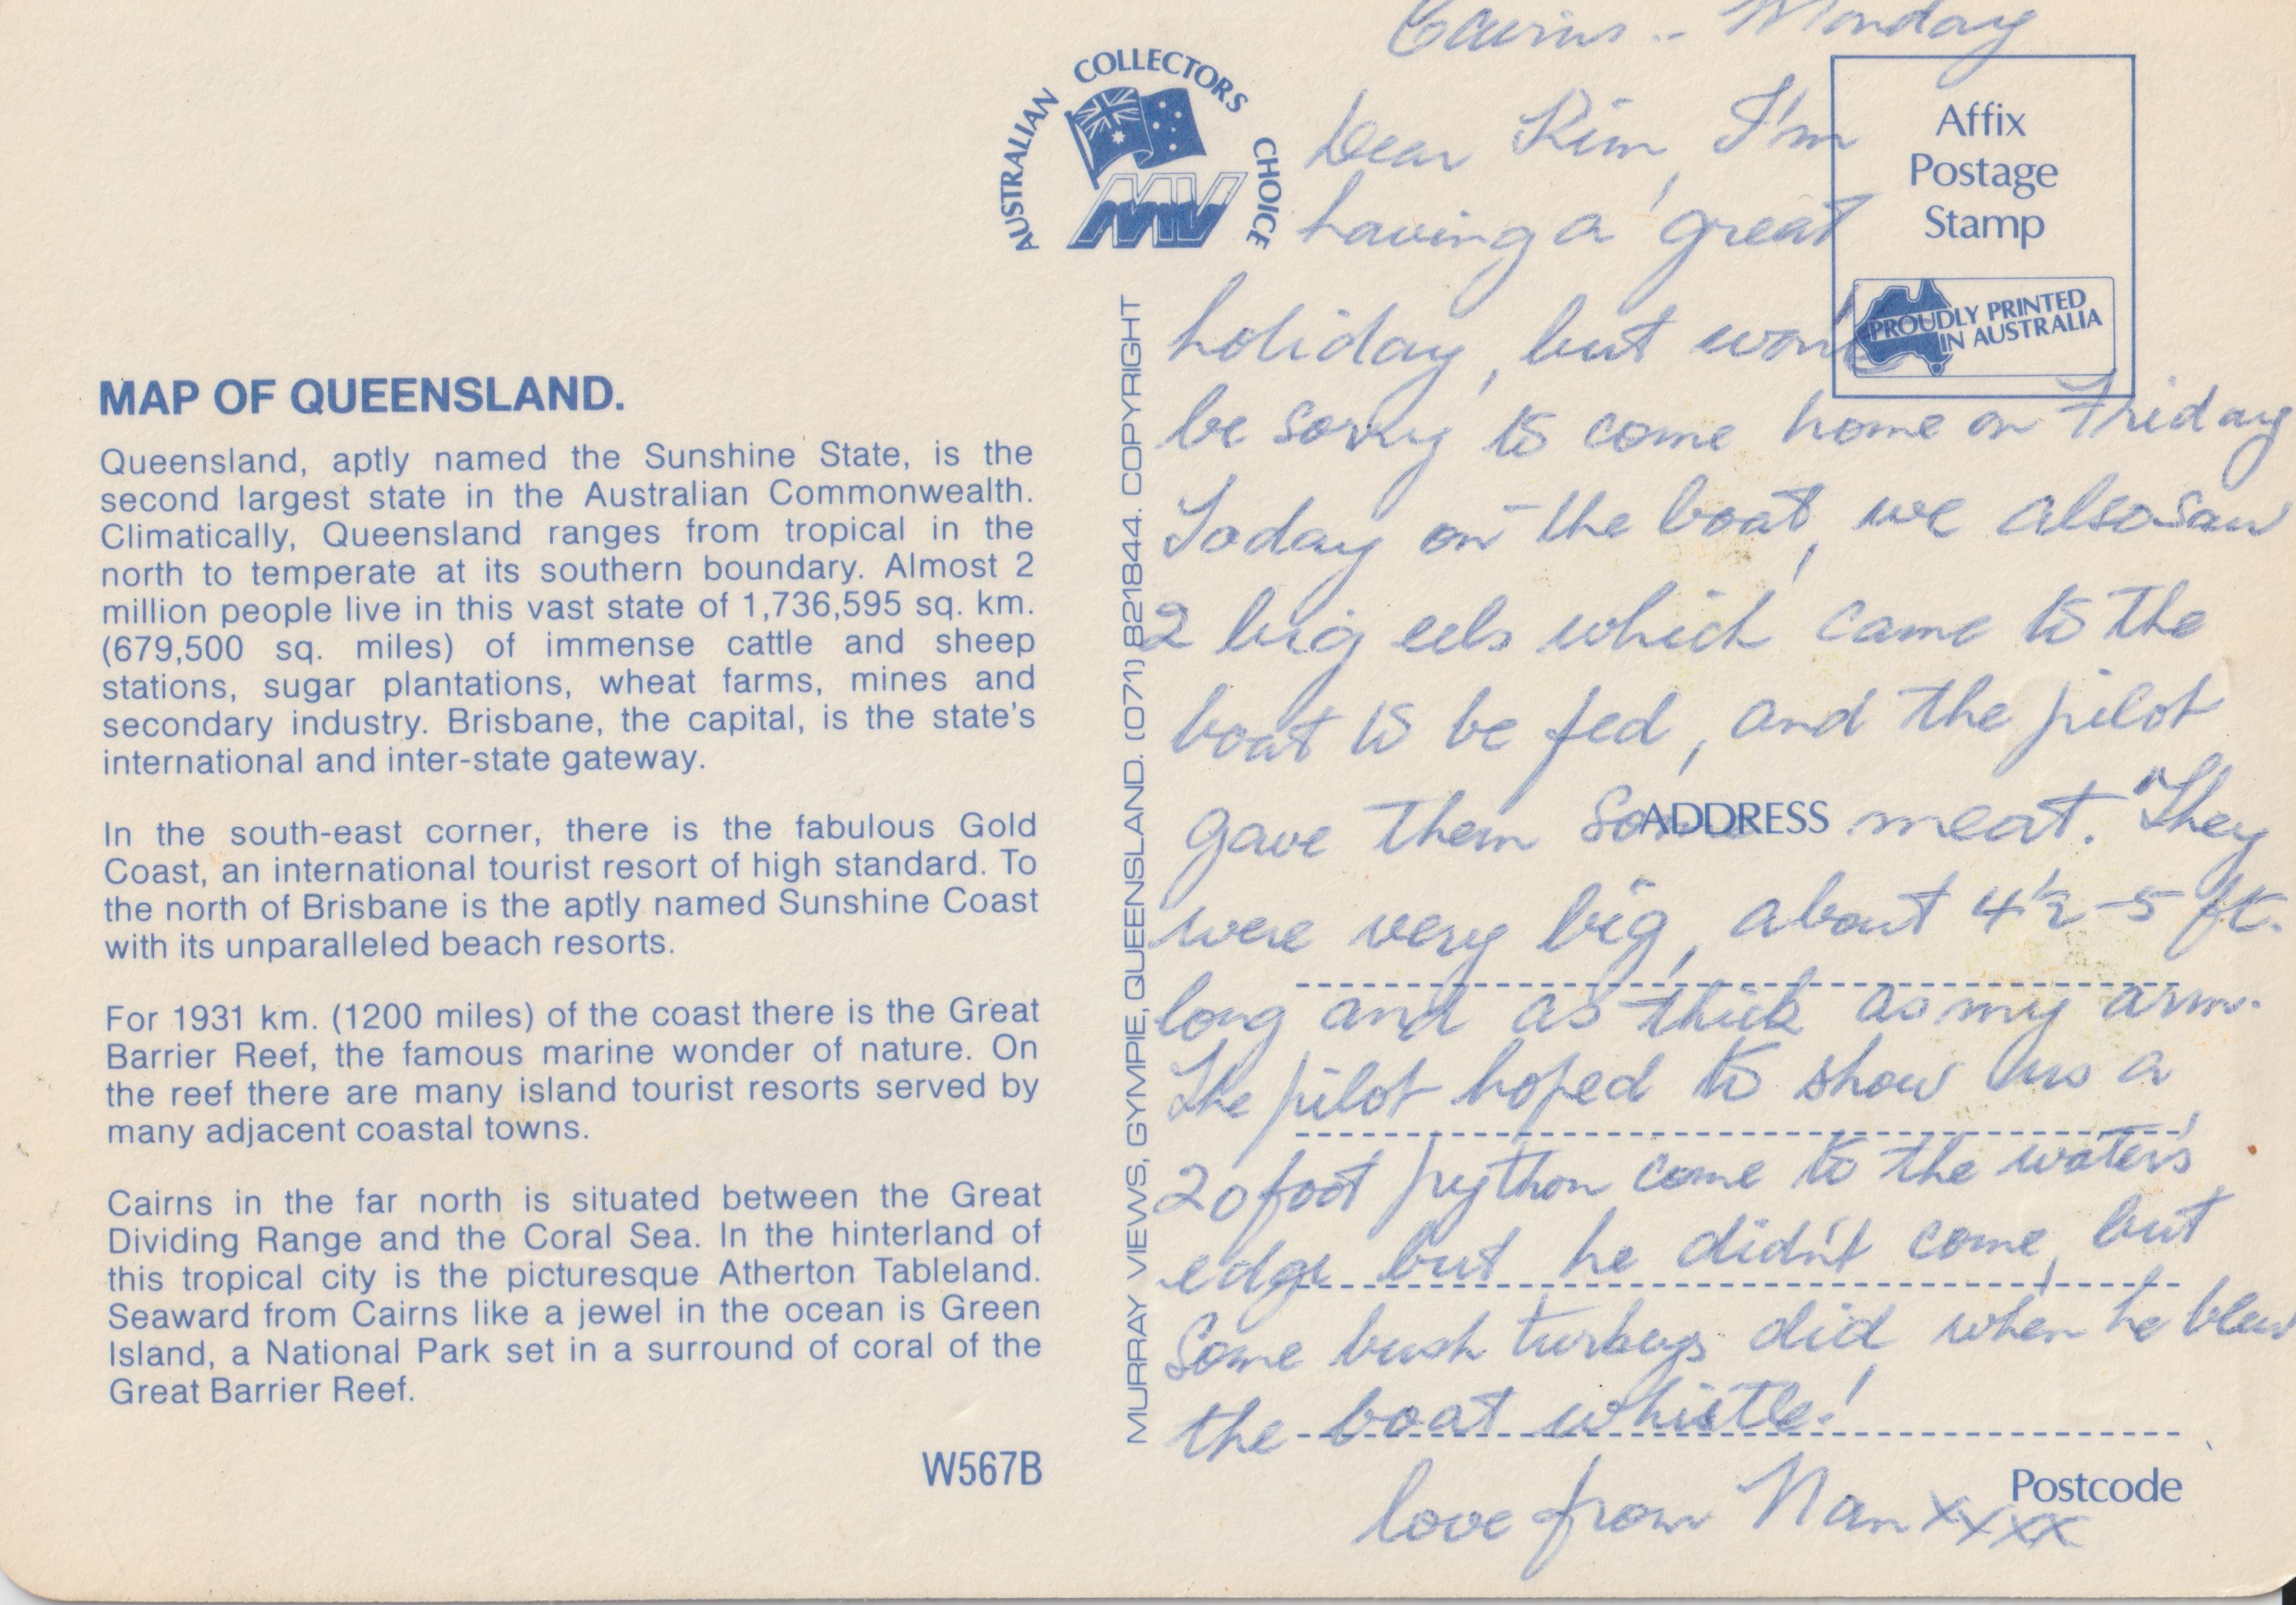 MAP OF QUEENSLAND.
Queensland, aptly named the Sunshine State, is the
second largest state in the Australian Commonwealth.
Climatically, Queensland ranges from tropical in the
north to temperate at its southern boundary. Almost 2
million people live in this vast state of 1,736,595 sq. km.
(679,500 sq. miles) of immense cattle and sheep
stations, sugar plantations, wheat farms, mines and
secondary industry. Brisbane, the capital, is the state's
international and inter-state gateway.
In the south-east corner, there is the fabulous Gold
Coast, an international tourist resort of high standard. To
the north of Brisbane is the aptly named Sunshine Coast
with its unparalleled beach resorts.
For 1931 km. (1200 miles) of the coast there is the Great
Barrier Reef, the famous marine wonder of nature. On
the reef there are many island tourist resorts served by
many adjacent coastal towns.
Cairns in the far north is situated between the Great
Dividing Range and the Coral Sea. In the hinterland of
this tropical city is the picturesque Atherton Tableland.
Seaward from Cairns like a jewel in the ocean is Green
Island, a National Park set in a surround of coral of the
Great Barrier Reef.
W567B
AUSTRALIAN COLLECTORS CHOICE
MV
MURRAY VIEWS, GYMPIE, QUEENSLAND. (071) 821844. COPYRIGHT
Affix
Postage
Stamp
PROUDLY PRINTED
IN AUSTRALIA
Cairns -- Monday
Dear Kim, I'm
having a great
holiday, but wont
be sorry to come home on Friday
Today on the boat, we also saw
2 big eels which came to the
boat to be fed, and the pilot
gave them some meat. They
ADDRESS
were very big, about 4½-5 ft.
long and as thick as my arm.
The pilot hoped to show us a
20 foot python come to the water's
edge but he didn't come, but
Some bush turkeys did, when he blew
the boat whistle!
love from Nan xxxx
Postcode